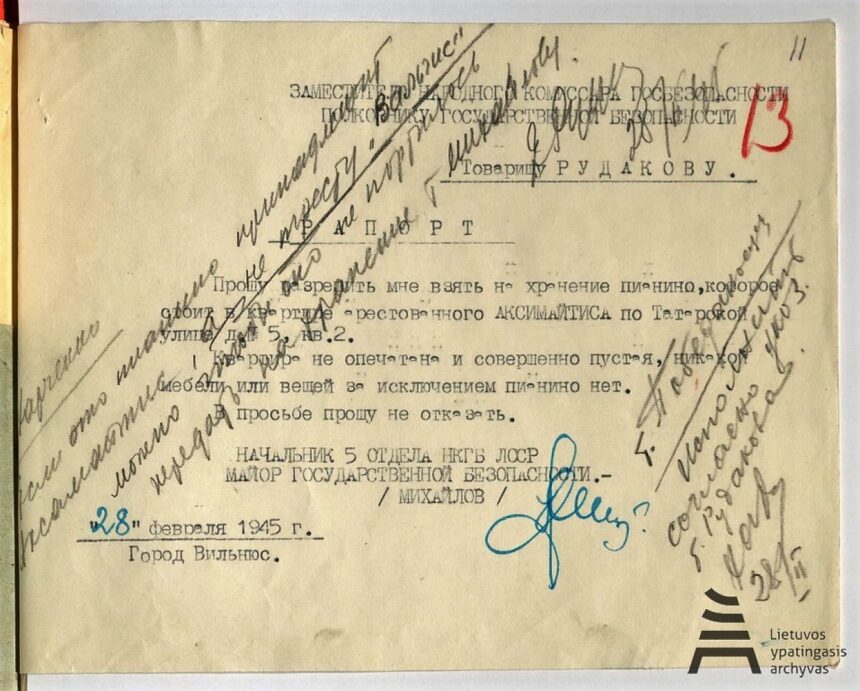 11
13
ЗАМЕСТИТЕЛЮ НАРОДНОГО КОМИССАРА ГОСБЕЗОПАСНОСТИ
ПОЛКОВНИКУ ГОСУДАРСТВЕННОЙ БЕЗОПАСНОСТИ
Товарищу РУДАКОВУ.
РАПОРТ
Прошу разрешить мне взять на хранение пианино, которое
стоит в квартире арестованного АКСИМАЙТИСА по Татарской
улице дом 5, кв.2.
Квартира не опечатана и совершенно пустая, никакой
мебели или вещей за исключением пианино нет.
В просьбе прошу не отказать.
НАЧАЛЬНИК 5 ОТДЕЛА НКГБ ЛССР
МАЙОР ГОСУДАРСТВЕННОЙ БЕЗОПАСНОСТИ.-
/ МИХАЙЛОВ /
"28" февраля 1945 г.
Город Вильнюс.
Если это пианино принадлежит
Аксамайтис, а не тресту "Валгис"
можно чтобы оно не портилось
передать на хранение т Михайлову.
исполнить
согласно указ.
т. Рудакова
28/II
Lietuvos
ypatingasis
archyvas